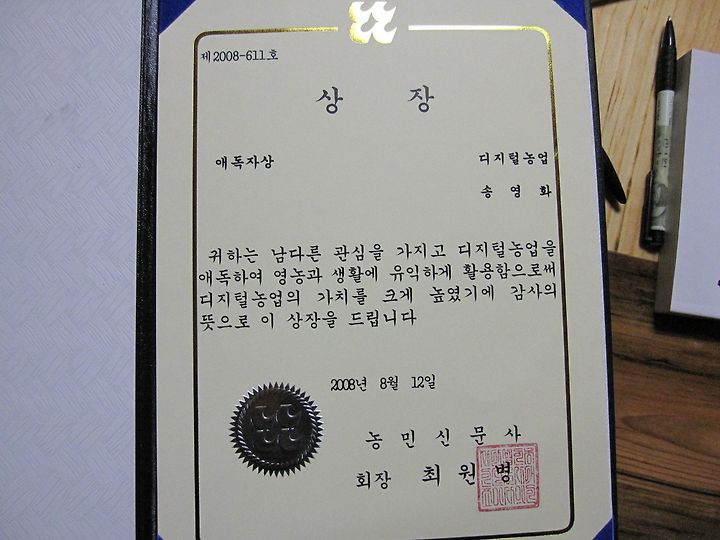 제2008-611호
상 장
애독자상 디지털농업
송 영 화
귀하는 남다른 관심을 가지고 디지털농업을
애독하여 영농과 생활에 유익하게 활용함으로써
디지털농업의 가치를 크게 높였기에 감사의
뜻으로 이 상장을 드립니다
2008년 8월 12일
농 민 신 문 사
회장 최 원 병